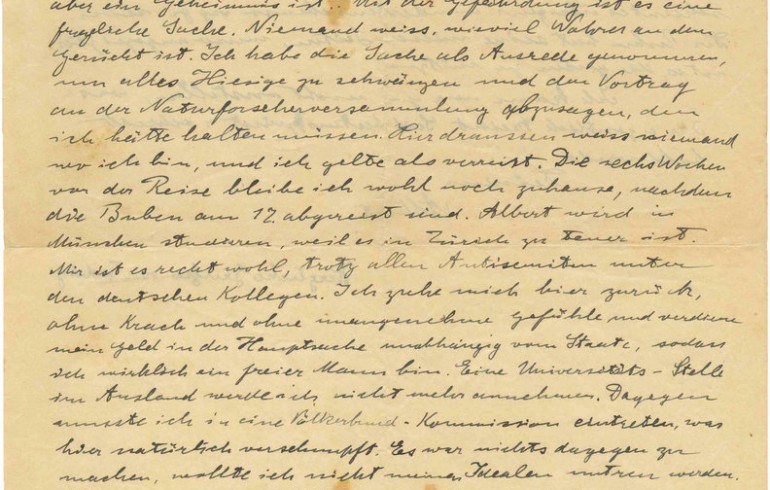 aber ein Geheimnis ist.. Mit der Gefährdung ist es eine
fragliche Sache. Niemand weiss, wieviel Wahres an dem
Gerücht ist. Ich habe die Sache als Ausrede genommen,
um alles Hiesige zu schwänzen und den Vortrag
an der Naturforscherversammlung abzusagen, den
ich hätte halten müssen. Hier draussen weiss niemand
wo ich bin, und ich gelte als verreist. Die sechs Wochen
vor der Reise bleibe ich wohl noch zuhause, nachdem
die Buben am 17. abgereist sind. Albert wird in
München studieren, weil es in Zürich zu teuer ist.
Mir ist es recht wohl, trotz allen Antisemiten unter
den deutschen Kollegen. Ich ziehe mich hier zurück,
ohne Krach und ohne unangenehme Gefühle und verdiene
mein Geld in der Hauptsache unabhängig vom Staate, sodass
ich wirklich ein freier Mann bin. Eine Universitäts-Stelle
im Ausland werde ich nicht mehr annehmen. Dagegen
musste ich in eine Völkerbund-Kommission eintreten, was
hier natürlich verschnupft. Es war nichts dagegen zu
machen, wollte ich nicht meinen Idealen untreu werden.